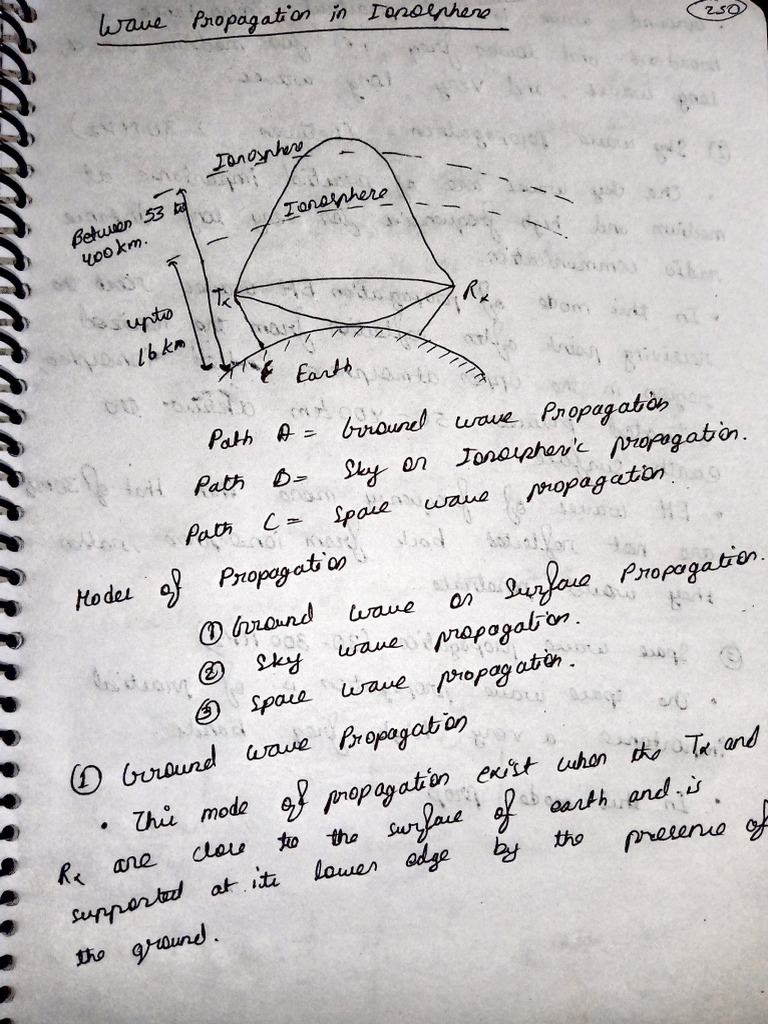 250
Wave Propagation in Ionosphere
Ionosphere
Ionosphere
Between 53 to
400 km.
Tx
Rx
upto
16 km
Earth
Path A = Ground wave Propagation
Path B = Sky or Ionospheric propagation.
Path C = Space wave propagation.
Modes of Propagation
① Ground wave or Surface Propagation.
② Sky wave propagation.
③ Space wave propagation.
① Ground wave Propagation
• This mode of propagation exist when the Tx and
Rx are close to the surface of earth and is
supported at its lower edge by the presence of
the ground.